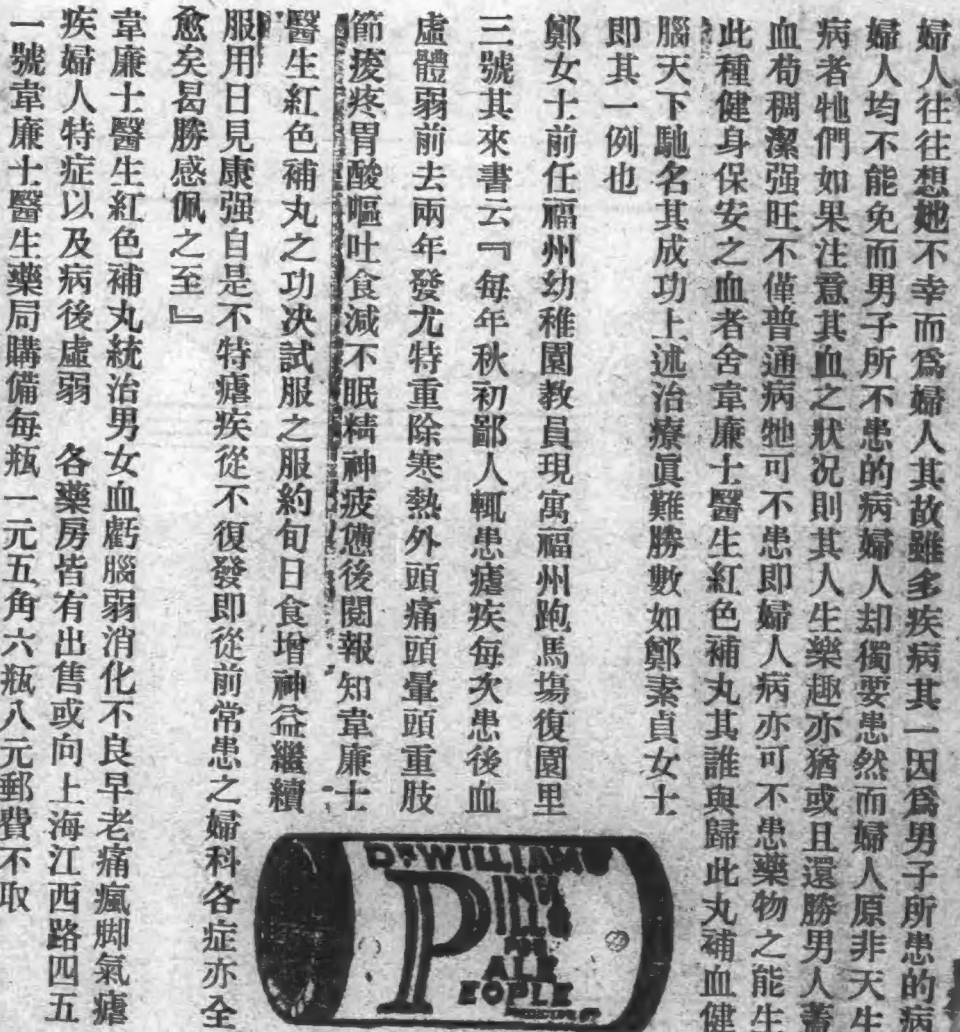 婦人往往想她不幸而爲婦人其故雖多疾病其一因爲男子所患的病
婦人均不能免而男子所不患的病婦人却獨要患然而婦人原非天生
病者牠們如果注意其血之狀况則其人生樂趣亦猶或且還勝男人蓋
血苟稠潔强旺不僅普通病牠可不患即婦人病亦可不患藥物之能生
此種健身保安之血者舍韋廉士醫生紅色補丸其誰與歸此丸補血健
腦天下馳名其成功上述治療眞難勝數如鄭素貞女士
即其一例也
鄭女士前任福州幼稚園教員現寓福州跑馬塲復園里
三號其來書云『每年秋初鄙人輒患瘧疾每次患後血
虛體弱前去兩年發尤特重除寒熱外頭痛頭暈頭重肢
節痠疼胃酸嘔吐食減不眠精神疲憊後閱報知韋廉士
醫生紅色補丸之功决試服之服約旬日食增神益繼續
服用日見康强自是不特瘧疾從不復發即從前常患之婦科各症亦全
愈矣曷勝感佩之至』
韋廉士醫生紅色補丸統治男女血虧腦弱消化不良早老痛瘋脚氣瘧
疾婦人特症以及病後虛弱　各藥房皆有出售或向上海江西路四五
一號韋廉士醫生藥局購備每瓶一元五角六瓶八元郵費不取
DR WILLIAMS
PINK
PILLS
FOR
PALE
PEOPLE